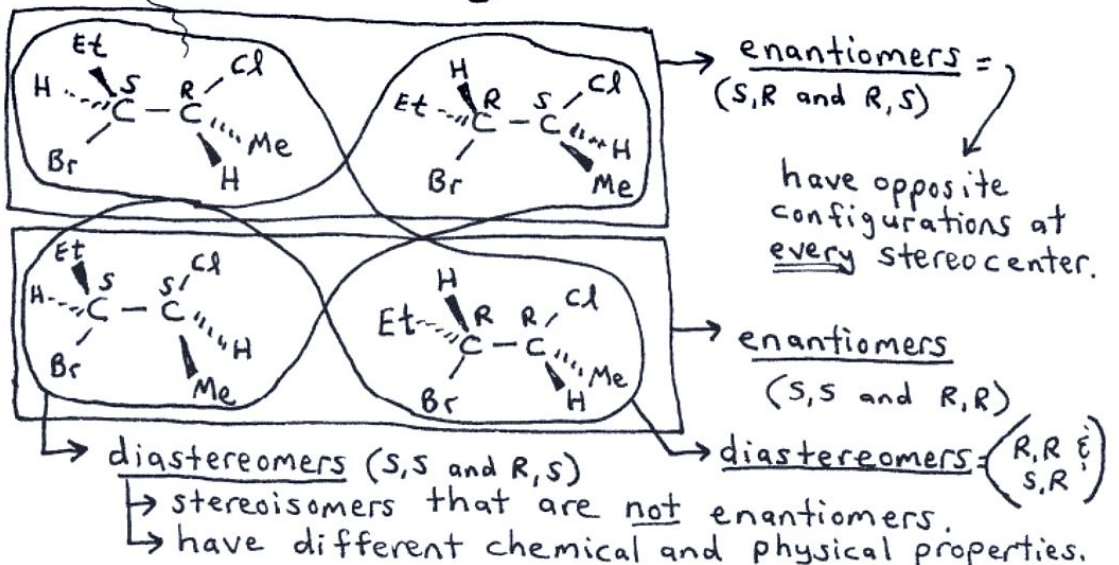 Et S R Cl
H C – C Me
Br H
H R S Cl
Et C – C H
Br Me
enantiomers =
(S,R and R,S)
have opposite
configurations at
every stereocenter.
Et S S Cl
H C – C H
Br Me
H R R Cl
Et C – C Me
Br H
enantiomers
(S,S and R,R)
diastereomers (S,S and R,S)
stereoisomers that are not enantiomers.
have different chemical and physical properties.
diastereomers = (R,R &
S,R)